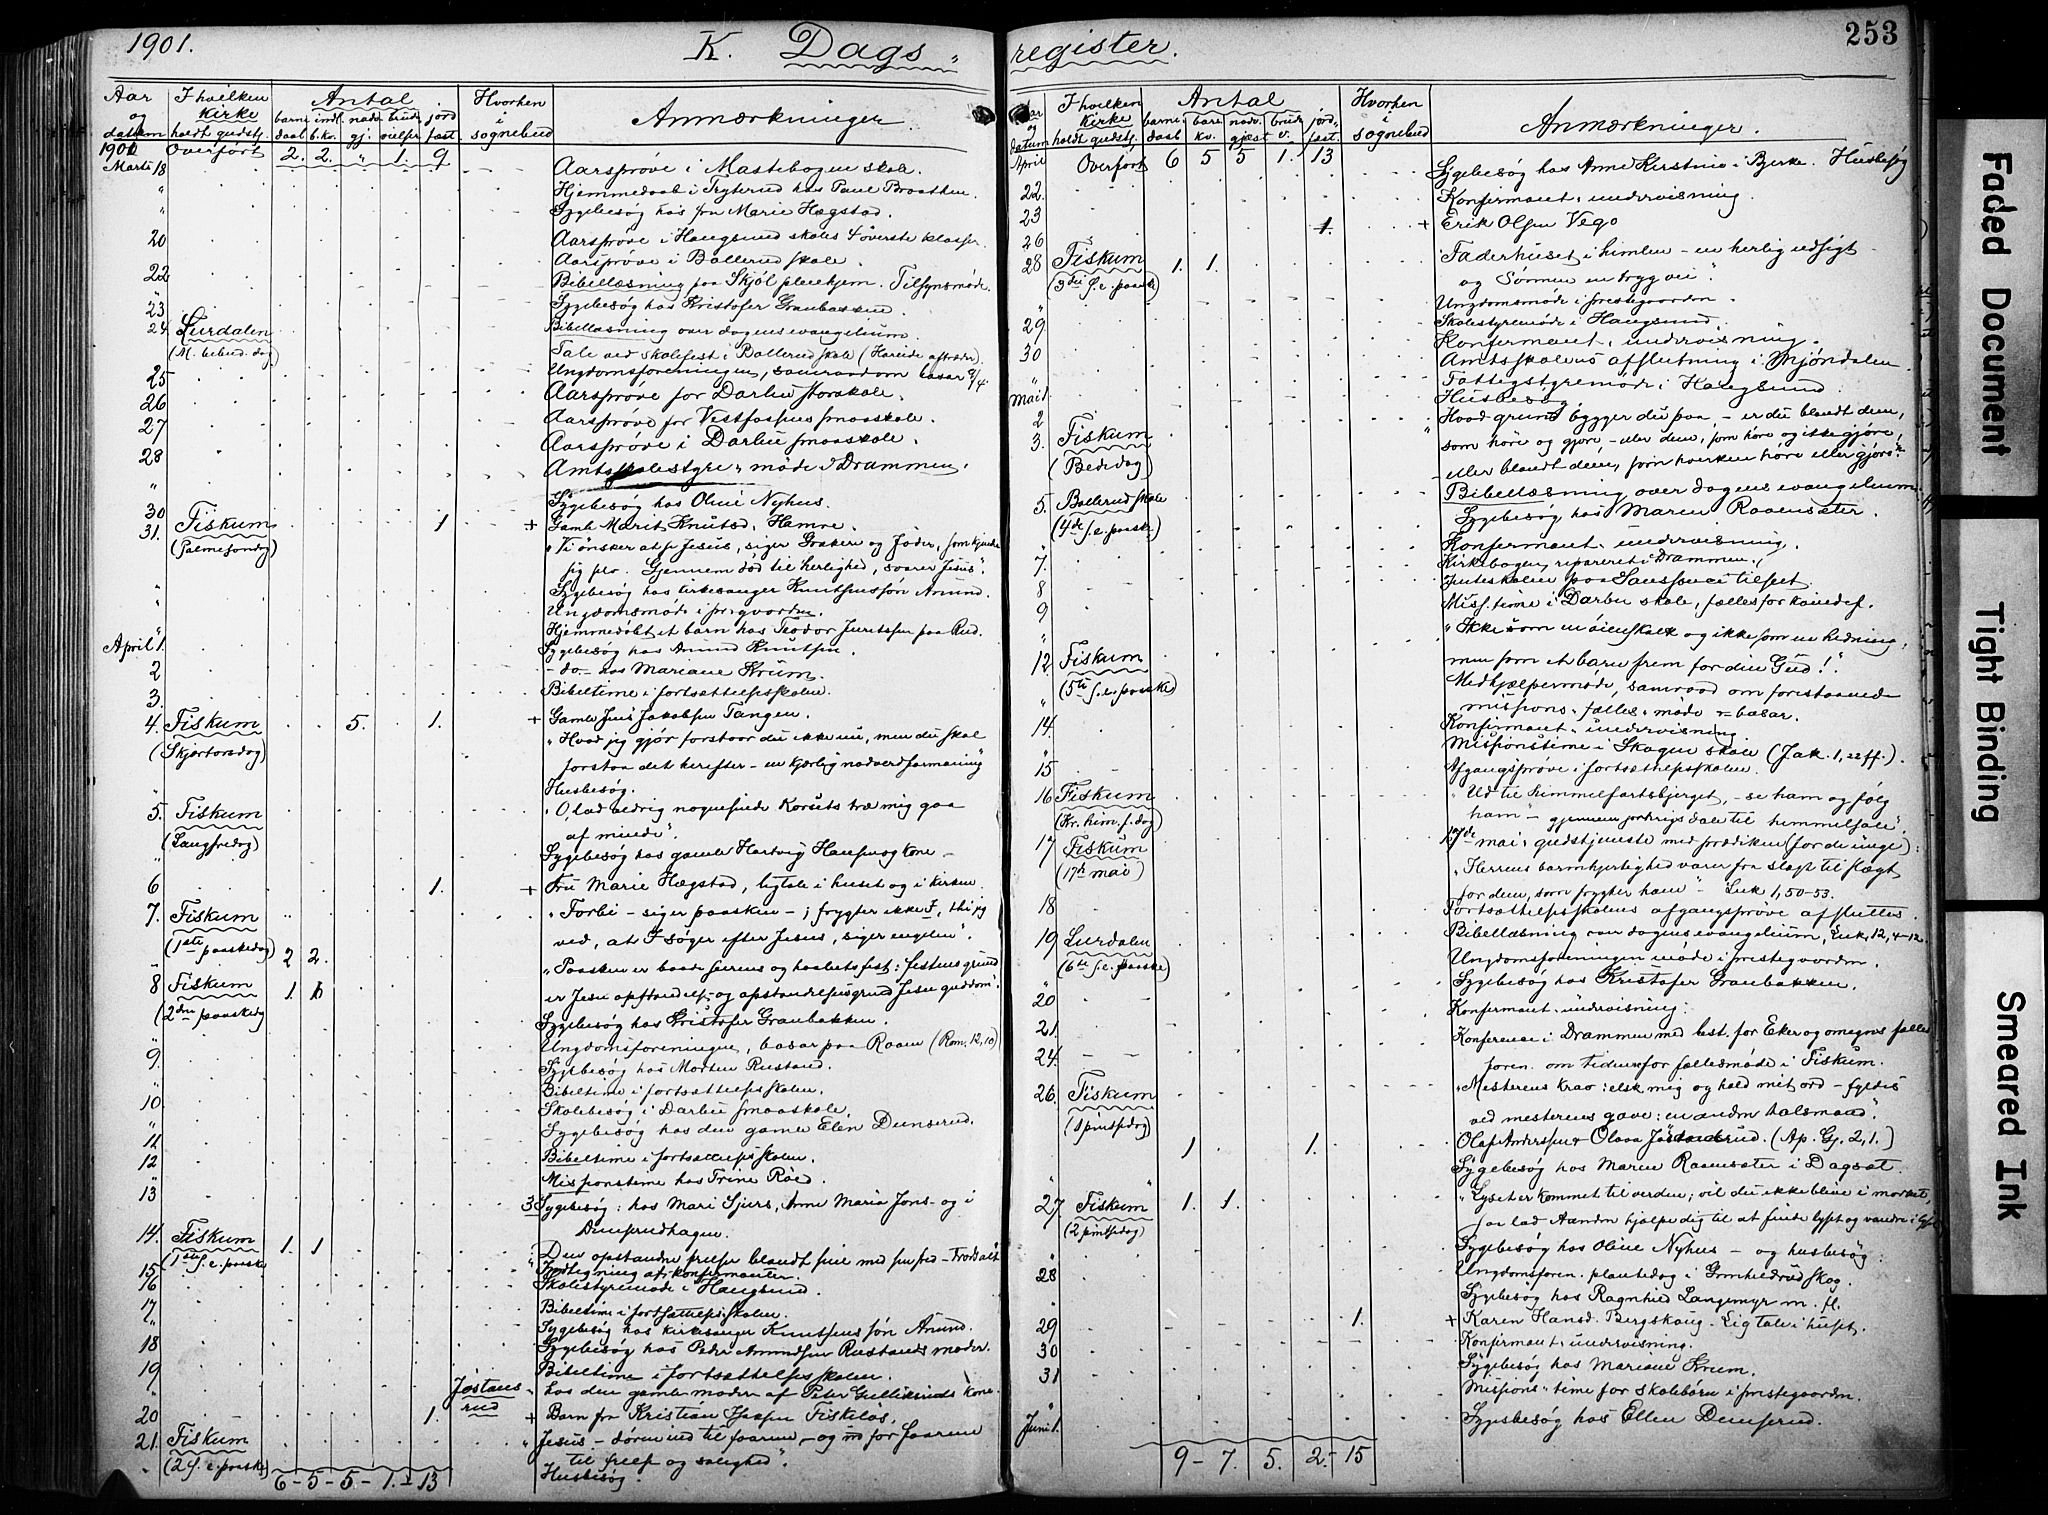 1901. K. Dags-
Aar og datum
I hvilken Kirke holdt gudstj.
Antal
barne daab
indl. b. kv.
nadv. gj.
brude vielser
jord fæst.
Hvorhen i sognebud
Anmærkninger.
1901 Overført 2. 2. " 1. 9
Marts 18 Aarsprøve i Mastebogen skole.
" Hjemmedaab i Tryterud hos Paul Braathen.
" Sygebesøg hos fru Marie Hægstad.
20 Aarsprøve i Hougsund skoles 4 øverste klasser.
" Aarsprøve i Bollerud skole.
22 Bibellæsning paa Skjøl pleiehjem. Tilsynsmøde.
23 Sygebesøg hos Kristofer Granbakken.
24 Lurdalen Bibellæsning over dagens evangelium.
(M. bebud. dag) Tale ved skolefest i Bollerud skole
25 Ungdomsforeningen, samraad om basar
26 Aarsprøve for Darbu storskole.
27 Aarsprøve for Vestfossens smaaskole.
28 Aarsprøve i Darbu smaaskole.
" Amtsskolestyre-møde i Drammen.
30 Sygebesøg hos Oline Nyhus.
31. Fiskum 1 + Gamle Marit Knutsd. Hamre.
(Palmesøndag) "Vi ønsker at se Jesus, siger Grækere og Jøder,
Gjennem død til herlighed, svarer Jesus".
" Sygebesøg hos kirkesanger Knutsens søn Anund.
" Ungdomsmøde i prgaarden.
" Hjemmedøbt et barn hos Teodor paa Rud.
April 1. Sygebesøg hos Anund Knutsen.
2 - do - hos Mariane Krum.
3. Bibeltime i fortsættelsesskolen.
4. Fiskum 5. 1. + Gamle Jens Jakobsen Tangen.
(Skjærtorsdag) "Hvad jeg gjør forstaar du ikke nu, men du skal
forstaa det herefter - en kjærlig nadverdformaning"
" Husbesøg.
5. Fiskum "O, lad aldrig nogensinde Korsets træ mig gaa
(Langfredag) af minde".
" Sygebesøg hos gamle Hartvig Hansen og kone -
6 1. + Fru Marie Hægstad, ligtale i huset og i kirken.
7. Fiskum "Forbi - siger paasken - ; frygter ikke I, thi jeg
(1ste paaskedag) 2 2. ved, at I søger efter Jesus, siger engelen".
8 Fiskum 1. "Paasken er baade seirens og haabets fest: festens grund
(2den paaskedag er Jesu opstandelse og opstandelsens grund Jesu guddom".
" Sygebesøg hos Kristofer Granbakken.
" Ungdomsforeningen, basar paa Raaen (Rom. 12,10)
9. Sygebesøg hos Morten Rustand.
" Bibeltime i fortsættelsesskolen.
10 Skolebesøg i Darbu smaaskole.
" Sygebesøg hos den gamle Elen Dunserud.
11 Bibeltime i fortsættelsesskolen.
12 Missionstime hos Trine Røed.
13 3 Sygebesøg: hos Mari Sjurs, Anne Maria Jons- og i
Dunserudhagen.
14. Fiskum 1. 1 "Den opstandne frelser blandt sine med sin fred - Trods alt"
(1ste s. e. paaske
15 Indtegning af konfirmanter.
16 Skolestyremøde i Hougsund.
17 Bibeltime i fortsættelsesskolen.
" Sygebesøg hos kirkesanger Knutsens søn Anund.
18 Sygebesøg hos Peder Amundsen Rustands moder.
19 Bibeltime i fortsættelsesskolen.
" Jøstans rud - hos den gamle moder af Peter Gulliksruds kone.
20 1. + Barn fra Kristian Fiskeløs.
21. Fiskum "Jesus - døren ind til faarene - og ud for faarene
(2 s. e. paaske) til frelse og salighed".
Husbesøg.
6 - 5 - 5 - 1. - 13

register. 253
Aar og datum
I hvilken Kirke holdt gudstj.
Antal
barne daab
bare. kv.
nadv. gjæst
brude v.
jord. fæst.
Hvorhen i sognebud
Anmærkninger.
April Overført 6 5 5 1. 13 Sygebesøg hos Anne Kerstine i Bjerke. Husbesøg
22. Konfirmant-undervisning.
23 1. + Erik Olsen Vego
26
28 Fiskum 1. 1. "Faderhuset i himlen - en herlig udsigt -
(3die s. e. paaske) og Sønnen en tryg vei".
" Ungdomsmøde i prestegaarden.
29 Skolestyremøde i Hougsund.
30 Konfirmant-undervisning.
Amtsskolens afslutning i Mjøndalen
" Fattigstyremøde i Hougsund.
Mai 1. Husbesøg.
2 "Hvad grund bygger du paa, - er du blandt dem,
3. Fiskum som høre og gjøre, - eller dem, som høre og ikke gjøre,
(Bededag) eller blandt dem, som hverken høre eller gjøre".
5. Bollerud skole Bibellæsning over dagens evangelium.
(4de s. e. paaske) Sygebesøg hos Maren Raaensæter.
" Konfirmant-undervisning.
7. Kirkebogen repareret i Drammen.
8 Juteskolen paa Sanssouci tilset.
9 Miss. time i Darbu skole, fælles for kvindef.
" "Ikke som en øienskalk og ikke som en hedning,
12 Fiskum men som et barn frem for din Gud!".
(5te s. e. paaske) Medhjælpermøde, samraad om forestaaende
" missions-fælles-møde - basar.
14. Konfirmant-undervisning
" Missionstime i Skogen skole (Jak. 1, 22 ff.).
15 Afgangsprøve i fortsættelsesskolen.
16 Fiskum "Ud til himmelfartsbjerget, - se ham og følg
(Kr. him. f. dag) ham" - gjennem jordrigs dale til himmelsale".
17 Fiskum 17de mai: gudstjeneste med prædiken (for de unge):
(17de mai) "Herrens barmhjertighed varer fra slægt til slægt
for dem, som frygter ham" - Luk 1, 50-53.
18 Fortsættelsesskolens afgangsprøve afsluttes.
19 Lurdalen Bibellæsning over dagens evangelium, Luk. 12, 4-12.
(6te s. e. paaske) Ungdomsforeningen møde i prestegaarden.
" Sygebesøg hos Kristofer Granbakken.
20 Konfirmant-undervisning.
21. Konference i Drammen med best. for Eker og omegns fælles
24. foren. om tiden for fællesmøde i Fiskum.
26. Fiskum "Mesterens krav: elsk mig og hold mit ord - fyldes
(1 pintsedag) ved mesterens gave: en anden talsmand".
1 1. Olaf Anderssen & Olava Jøstandsrud. (Ap. Gj. 2, 1.)
" Sygebesøg hos Maren Raaensæter i Dagsat.
27. Fiskum 1. 1. "Lyset er kommet til verden; vil du ikke blive i mørket,
(2 pintsedag) saa lad Aanden hjelpe dig til at finde lyset og vandre i lyset
" Sygebesøg hos Oline Nyhus - og husbesøg.
28 Ungdomsforen. plantedag i Gunhildrud skog.
" Sygebesøg hos Ragnhild Langemyr m. fl.
29 1. + Karen Hansd. Bergskaug. Ligtale i huset.
30 Konfirmant-undervisning.
31 Sygebesøg hos Mariane Krum.
" Missions-time for skolebørn i prestegaarden.
Juni 1. Sygebesøg hos Ellen Dunserud.
9 - 7. 5. 2. - 15
Faded Document
Tight Binding
Smeared Ink